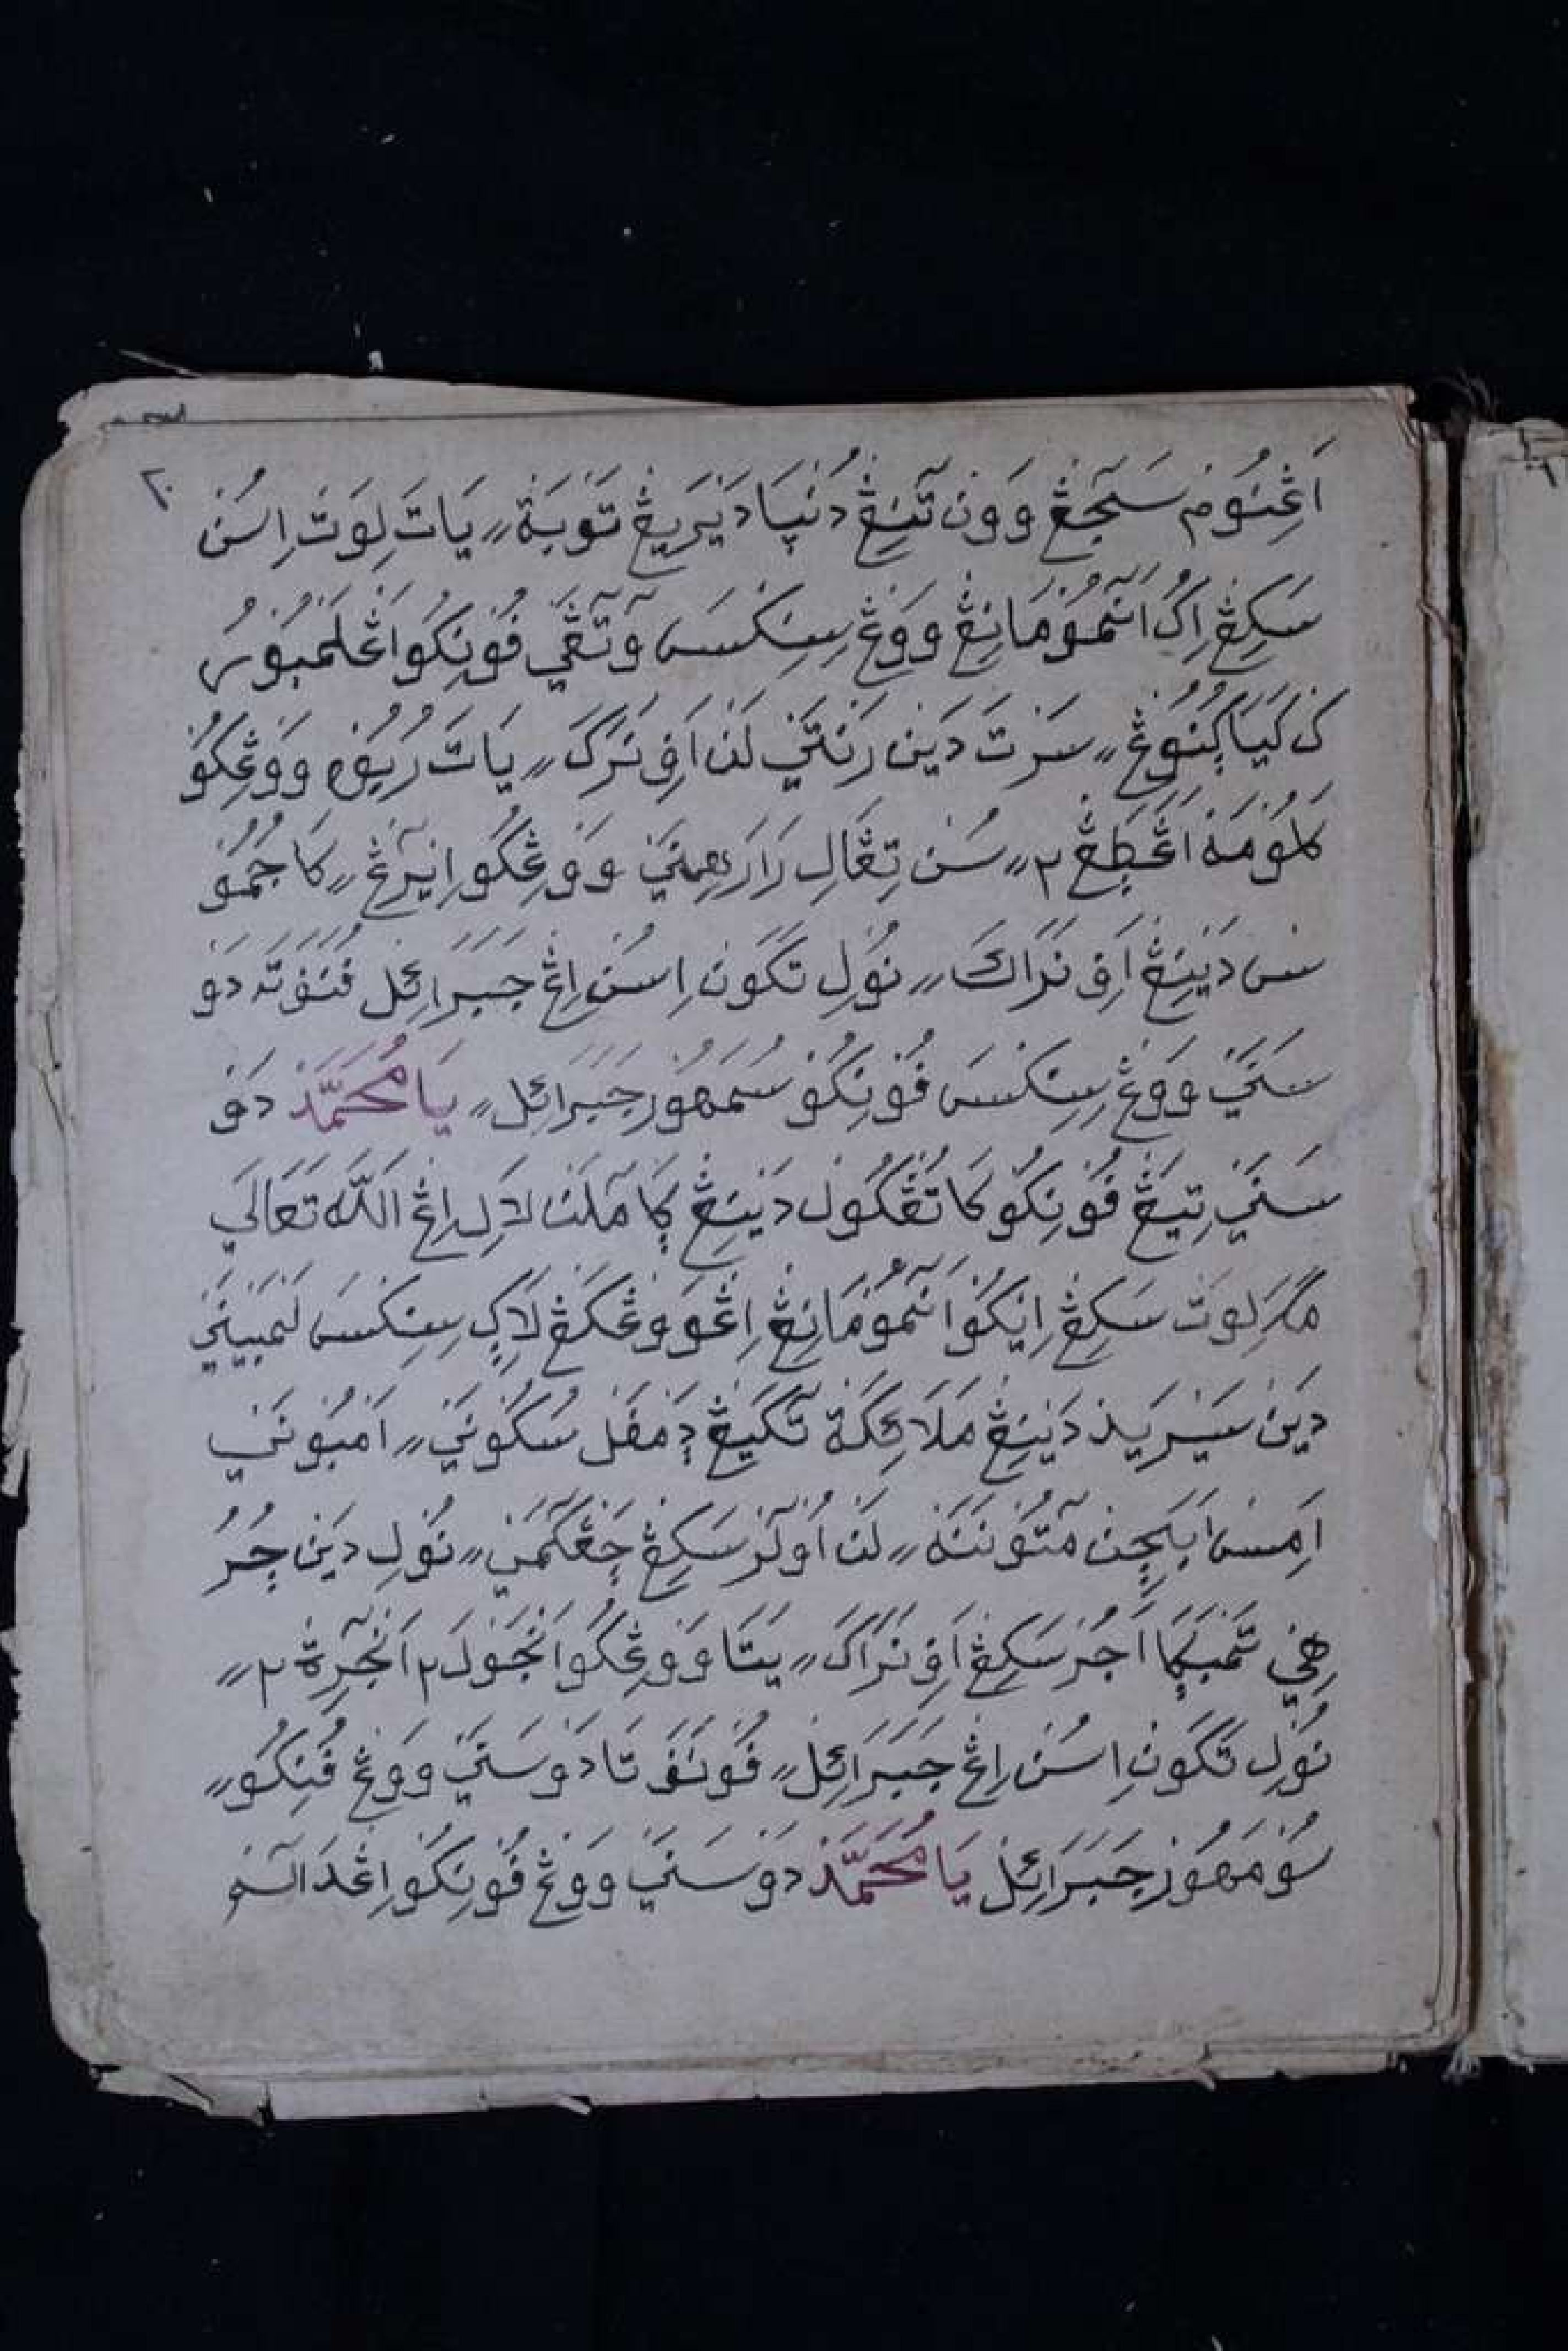 ٢٠
اَڠِنُوْمْ سَجٓڠْ وَوْنْ تٓنِڠْ دُنْيَا دَيْرَيڠْ تَوْبَةْ ٫٫ يَاتَ لِوَتْ اِسُنْ
سَكِڠْ اِكُ اَنٓمُوْ مَانِڠْ وَوْڠْ سِنِكْسَ وٓتٓڠَيْ فُوْنِكُوْ اَڠْلَمْبُوْسْ
كَيَا كُنُوْڠْ ٫٫ سَرْتَ دَيْنْ رَنْتَيْ لَنْ اَفِ نَرَكَ ٫٫ يَاتَ رُبُوْهْ وَوْڠِكُوْ
كَلُوْمَهْ اَڠْجَطِڠْ ٢ ٫٫ سُنْ تِڠَالِ رَارَهِنَيْ وَوْڠِكُوْ اِيْرٓڠْ ٫٫ كَاجُمُوْ
سْ دَيْنِڠْ اَفِ نَرَاكَ ٫٫ نُوْلِ تَكَوْنْ اِسُنْ اِڠْ جَبَرَائِلْ فُنَفَتَهْ دَوْ
سَنَيْ وَوْڠْ سِنِكْسَ فُوْنِكُوْ سُمَهُوْرْ جَبَرَائِلْ ٫٫ يَا مُحَمَّدْ دَوْ
سَنَيْ تِيَڠْ فُوْنِكُوْ كَاتُڠْكُوْلْ دَيْنِڠْ كَامٓلَنْ لَالِ اِڠْ اَللَّهْ تَعَالَي
مَكَ لِوَتْ سَكِڠْ اِيْكُوْ اَنٓمُوْ مَانِڠْ اِڠْوَوْڠْكَڠْ لَاكِ سِنِكْسَ لَمْبَيْنَيْ
دَيْنْ سَيْرَيدْ دَيْنِڠْ مَلَائِكَةْ تٓكَيڠْ دٓمْفَلْ سُكُوْنَيْ ٫٫ اَمْبُوْنَيْ
اَمِسْ اَبَچِنْ مٓتُوْ نَنَهْ ٫٫ لَنْ اُوْلٓرْ سَكِڠْ چَڠْكٓمَيْ ٫٫ نُوْلِ دَيْنْ چُرُ
هِيْ تَمْبَكَا اَجُرْ سَكِڠْ اَفِ نَرَاكَ ٫٫ يَتَا وَوْڠِكُوْ اَنْجَوْلَ ٢ اَنْجٓرِةْ ٢ ٫٫
نُوْلِ تَكَوْنْ اِسُنْ اِڠْ جَبَرَائِلْ ٫٫ فُوْنَفَ تَا دَوْسَنَيْ وَوْڠْ فُنِكُوْ ٫٫
سُوْمَهُوْرْ جَبَرَائِلْ يَا مُحَمَّدْ دَوْسَنَيْ وَوْڠْ فُوْنِكُوْ اِڠْدَالٓمْ